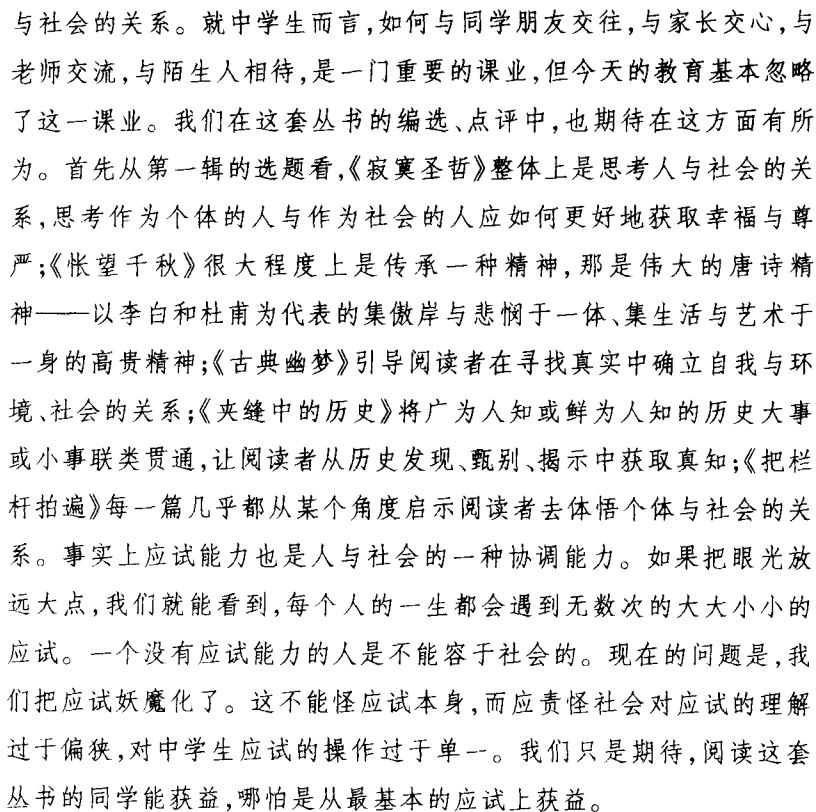 与社会的关系。就中学生而言,如何与同学朋友交往,与家长交心,与
老师交流,与陌生人相待,是一门重要的课业,但今天的教育基本忽略
了这一课业。我们在这套丛书的编选、点评中,也期待在这方面有所
为。首先从第一辑的选题看,《寂寞圣哲》整体上是思考人与社会的关
系,思考作为个体的人与作为社会的人应如何更好地获取幸福与尊
严;《怅望千秋》很大程度上是传承一种精神,那是伟大的唐诗精
神——以李白和杜甫为代表的集傲岸与悲悯于一体、集生活与艺术于
一身的高贵精神;《古典幽梦》引导阅读者在寻找真实中确立自我与环
境、社会的关系;《夹缝中的历史》将广为人知或鲜为人知的历史大事
或小事联类贯通,让阅读者从历史发现、甄别、揭示中获取真知;《把栏
杆拍遍》每一篇几乎都从某个角度启示阅读者去体悟个体与社会的关
系。事实上应试能力也是人与社会的一种协调能力。如果把眼光放
远大点,我们就能看到,每个人的一生都会遇到无数次的大大小小的
应试。一个没有应试能力的人是不能容于社会的。现在的问题是,我
们把应试妖魔化了。这不能怪应试本身,而应责怪社会对应试的理解
过于偏狭,对中学生应试的操作过于单一。我们只是期待,阅读这套
丛书的同学能获益,哪怕是从最基本的应试上获益。